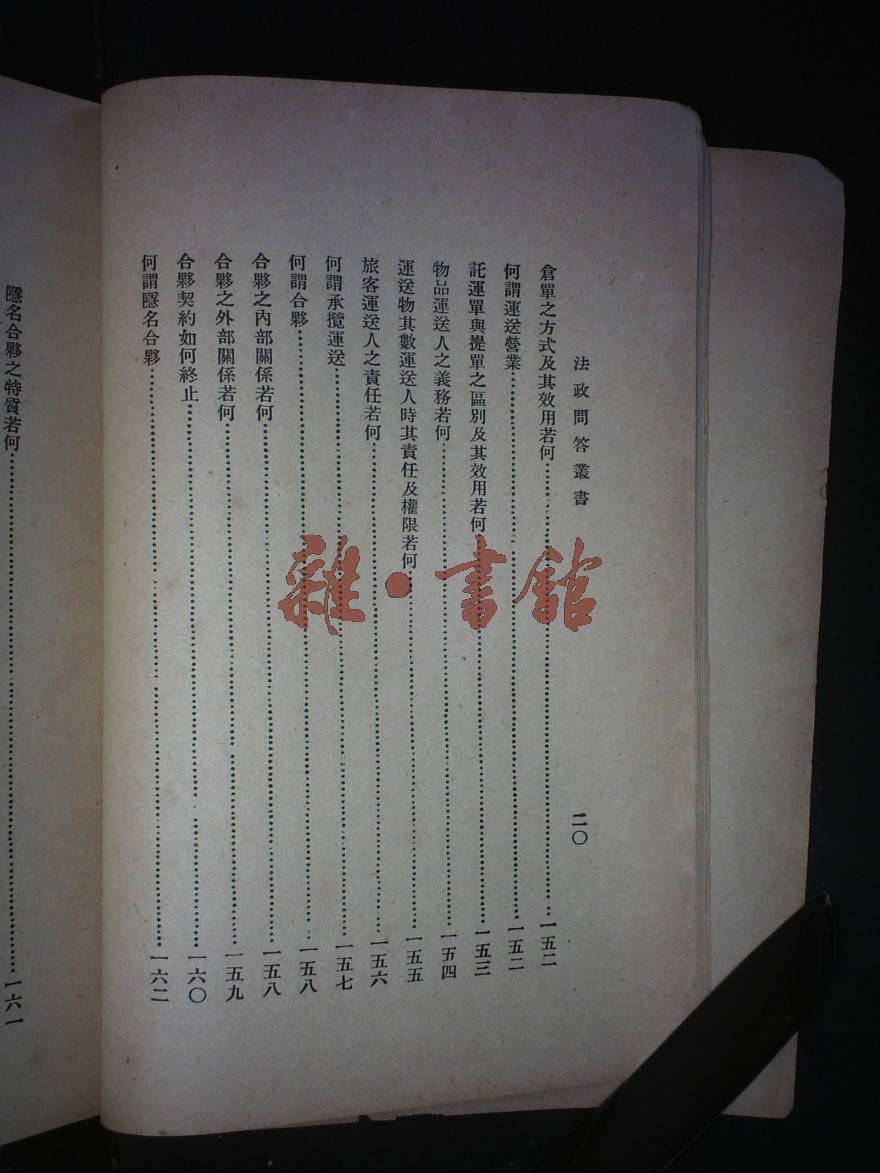 法政問答叢書
二〇
倉單之方式及其效用若何…………一五二
何謂運送營業…………一五二
託運單與提單之區別及其效用若何…………一五三
物品運送人之義務若何…………一五四
運送物其數運送人時其責任及權限若何…………一五五
旅客運送人之責任若何…………一五六
何謂承攬運送…………一五七
何謂合夥…………一五八
合夥之內部關係若何…………一五八
合夥之外部關係若何…………一五九
合夥契約如何終止…………一六〇
何謂隱名合夥…………一六二
隱名合夥之特質若何…………一六一
雜·書館